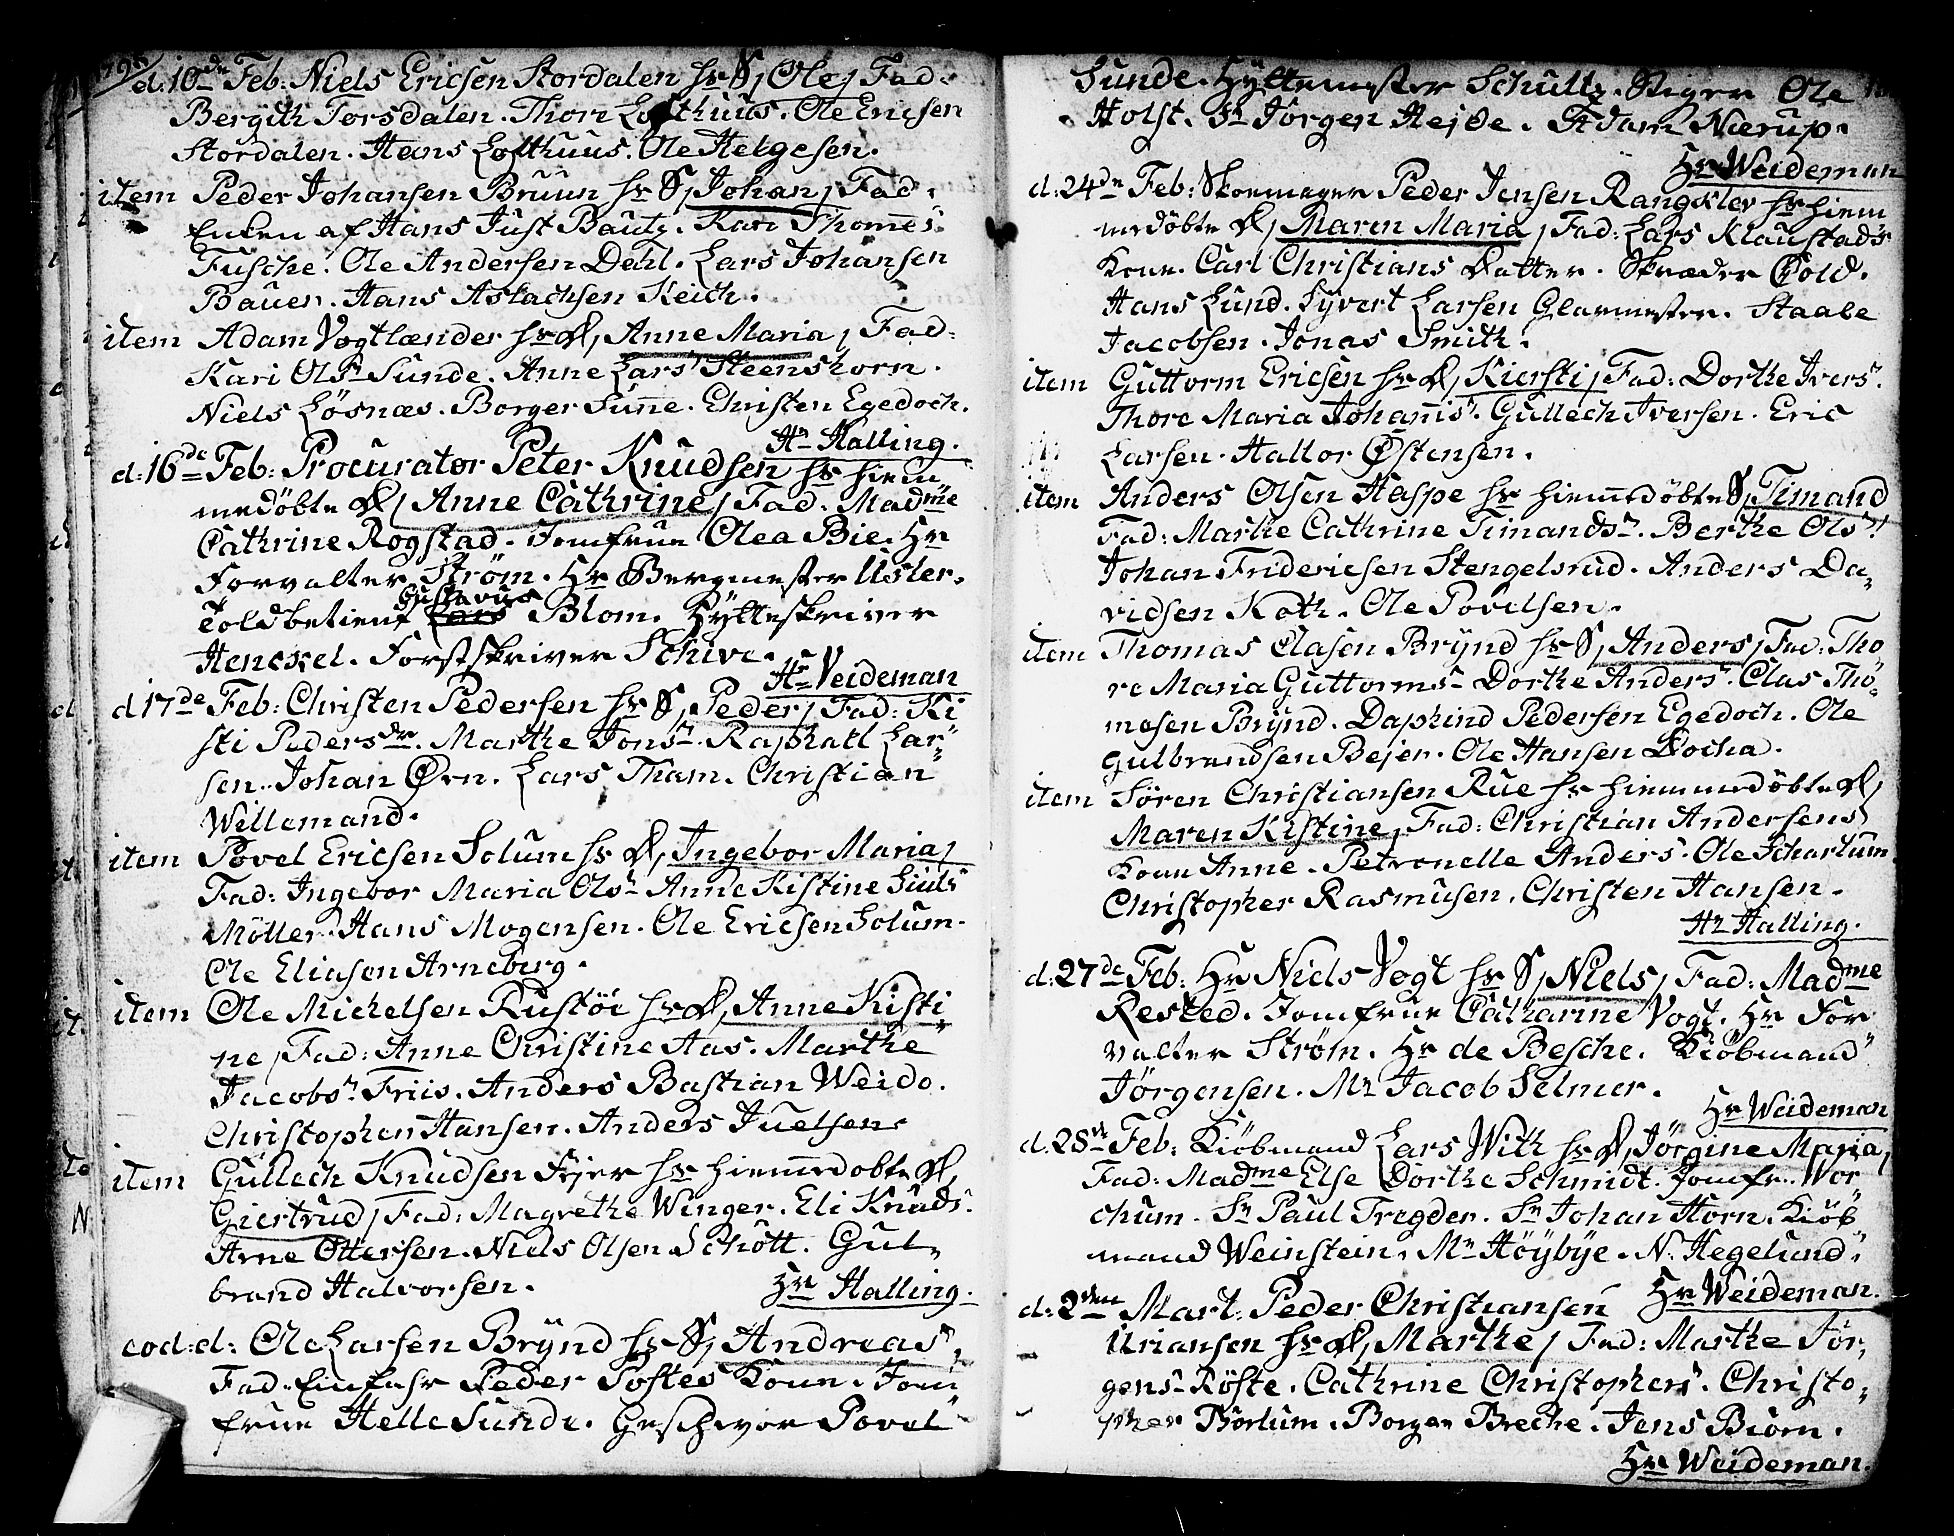 d: 10de Feb: Niels Ericsen Stordalen hr S, Ole, Fad:
Bergith Torsdalen. Thore Lofthuus. Ole Ericsen
Stordalen. Hans Lofthuus. Ole Helgesen.
item Peder Johansen Bruun hr S, Johan, Fad:
Enken af Hans Just Bautz. Kari Thomes:
Fusche. Ole Andersen Dahl. Lars Johansen
Bauer. Hans Aslachsen Keich.
item Adam Vogtlænder hr D, Anne Maria, Fad:
Kari Olsr Sunde. Anne Larsr Steenshorn.
Niels Løsnæs. Borger Sunne. Christen Egedoch.
Hr Halling.
d: 16de Feb: Procurator Peter Knudsen hr hiem
medøbte D, Anne Cathrine, Fad: Madme
Cathrine Rogstad. Jomfrue Olea Bie. Hr
Forvalter Strøm. Hr Bergmester Usler.
Toldbetient Gustavus Blom. Hytteskriver
Henckel. Forstskriver Schive.
Hr Weideman
d 17de Feb: Christen Pedersen hr S, Peder, Fad: Ki
sti Pedersdr. Marthe Jonsr. Raphael Lar-
sen. Johan Ørn. Lars Tham. Christian
Willemand.
item Povel Ericsen Solum hr D, Ingebor Maria,
Fad: Ingebor Maria Olsr Anne Kistine Siuls
Möller. Hans Mogensen. Ole Ericsen Solum.
Ole Eliasen Arneberg.
item Ole Michelsen Rustøe hr D, Anne Kisti
ne, Fad: Anne Christine Aas. Marthe
Jacobsr Friis. Anders Bastian Weido.
Christopher Hansen. Anders Juelsen.
item Gullech Knudsen Fejer hr hiemmedøbte D,
Giertrud, Fad: Magrethe Winger. Eli Knuds:
Arne Ottersen. Niels Olsen Schøtt. Gul-
brand Halvorsen.
Hr Halling.
eod: d: Ole Larsen Brÿnd hr S, Andreas,
Fad: Einfahr Peder Postes Kone. Jom
frue Helle Sunde. Geschwor Povel
Sunde. Hyttemester Schultz. Stiger Ole
Holst. Sr Jörgen Hejde. Adam Nierup.
Hr Weideman
d: 24de Feb: Skoemager Peder Jensen Rangklev hr hiem
medøbte D, Maren Maria, Fad: Lars Klaustads
Kone. Carl Christians Datter. Skræder Gold.
Hans Lund. Syvert Larsen Glarmester. Staale
Jacobsen. Jonas Smith.
item Guttorm Ericsen hr D, Kiersti, Fad: Dorthe Ivers:
Thore Maria Johannisr. Gullech Iversen. Eric
Larsen. Haltor Østensen.
item Anders Olsen Haspe hr hiemmedøbte S, Timand
Fad: Marthe Cathrine Timandsr. Berthe Olsr
Johan Fridericsen Stengelsrud. Anders Da-
vidsen Koth. Ole Povelsen.
item Thomas Clasen Brÿnd hr S, Anders, Fad: Tho
re Maria Guttormsr Dorthe Andersr. Clas Tho-
mesen Brÿnd. Daphind Pedersen Egedoch. Ole
Gulbrandsen Bejer. Ole Hansen Docka.
item Søren Christiansen Rue hr hiemmedøbte D,
Maren Kistine, Fad: Christian Andersens
Kone Anne. Petronelle Andersr. Ole Scharlum.
Christopher Rasmusen. Christen Hansen.
Hr Halling.
d: 27de Feb: Hr Niels Vogt hr S, Niels, Fad: Madme
Rested. Jomfrue Catharine Vogt. Hr For
valter Strøm. Hr de Besche. Kiöbmand
Jörgensen. Mr Jacob Selmer.
Hr Weideman
d: 28de Feb: Kiöbmand Lars With hr D, Jörgine Maria,
Fad: Madme Else Dorthe Schmidt. Jomfr. Wor
chum. Sr Paul Tregder. Sr Johan Horn. Kiöb
mand Weinstein. Mr Höybye. N. Hegelund.
Hr Weideman.
d: 2den Mart: Peder Christiansen
Uriansen hr D, Marthe, Fad: Marthe Jör-
gensr Röste. Cathrine Christophersr. Christo-
pher Borlum. Borger Breche. Jens Biörn.
Hr Weideman.